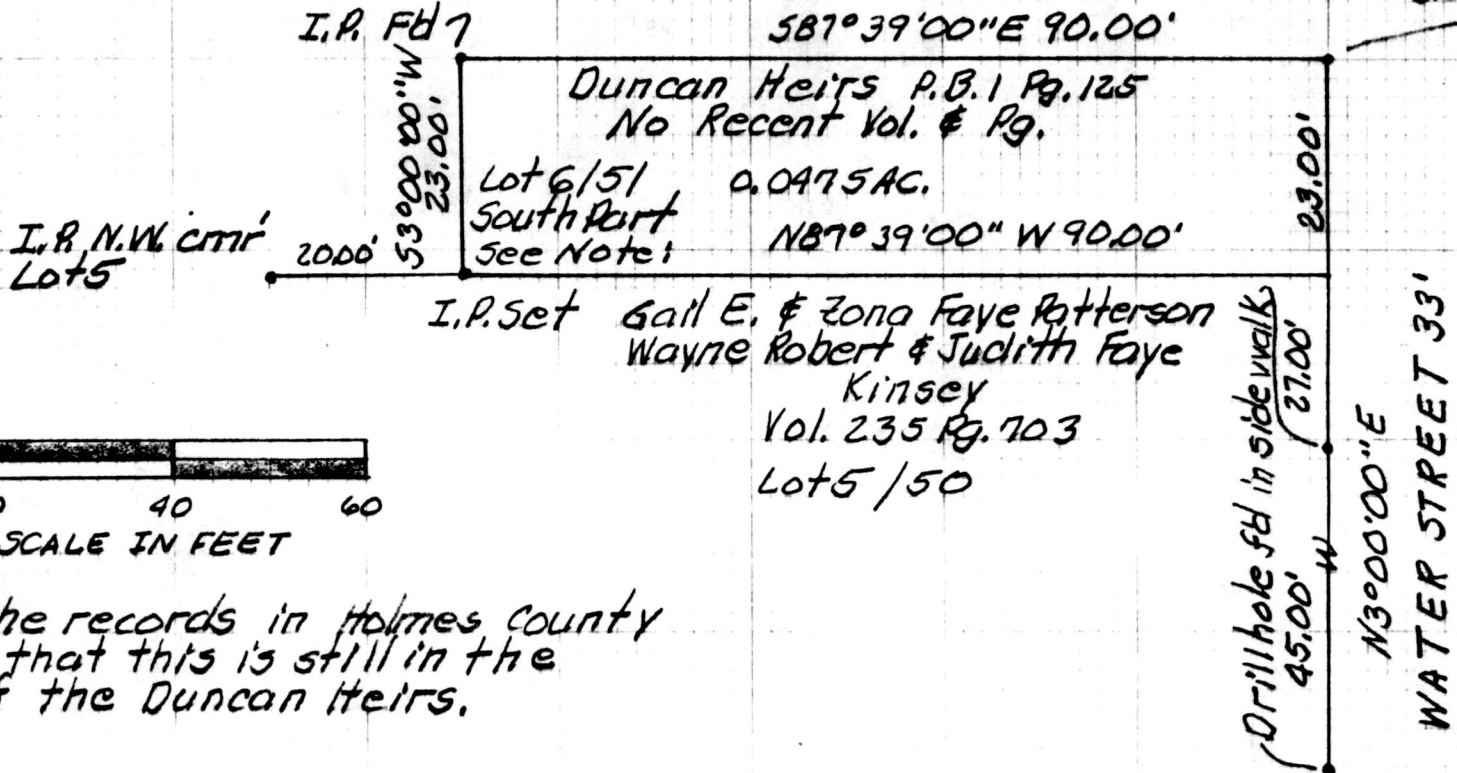 I.P. Fd
S87°39'00"E 90.00'
S3°00'00"W
23.00'
Duncan Heirs P.B.1 Pg.125
No Recent Vol. & Pg.
Lot 6/51 0.0475 AC.
South Part
See Note:
N87°39'00" W 90.00'
23.00'
I.P. N.W. crnr
Lot 5
20.00'
I.P. Set
Gail E. & Zona Faye Patterson
Wayne Robert & Judith Faye
Kinsey
Vol. 235 Pg. 703
Lot 5 / 50
27.00'
Drillhole fd in sidewalk
45.00'
N3°00'00"E
WATER STREET 33'
40 60
SCALE IN FEET
he records in Holmes County
that this is still in the
the Duncan Heirs.